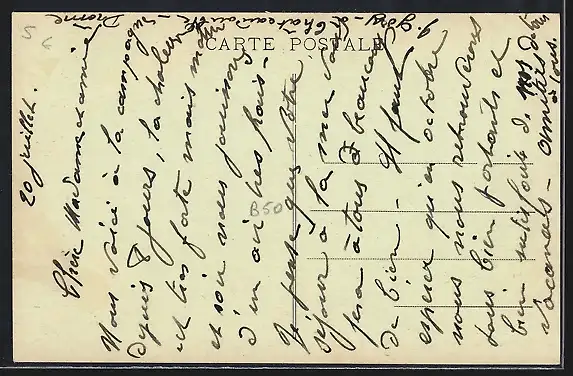 CARTE POSTALE
20 juillet.
Chère Madame et amie
Nous voici à la campagne
depuis 8 jours, la chaleur
est très forte mais matin
et soir nous jouissons
d'un air très frais -
Je pense que votre
séjour à la mer vous
fera à tous beaucoup
de bien - Il faut
espérer qu'en octobre
nous nous retrouverons
tous bien portants et
bien satisfaits de nos
vacances - Amitiés de tous
à tous.
Drôme
B50